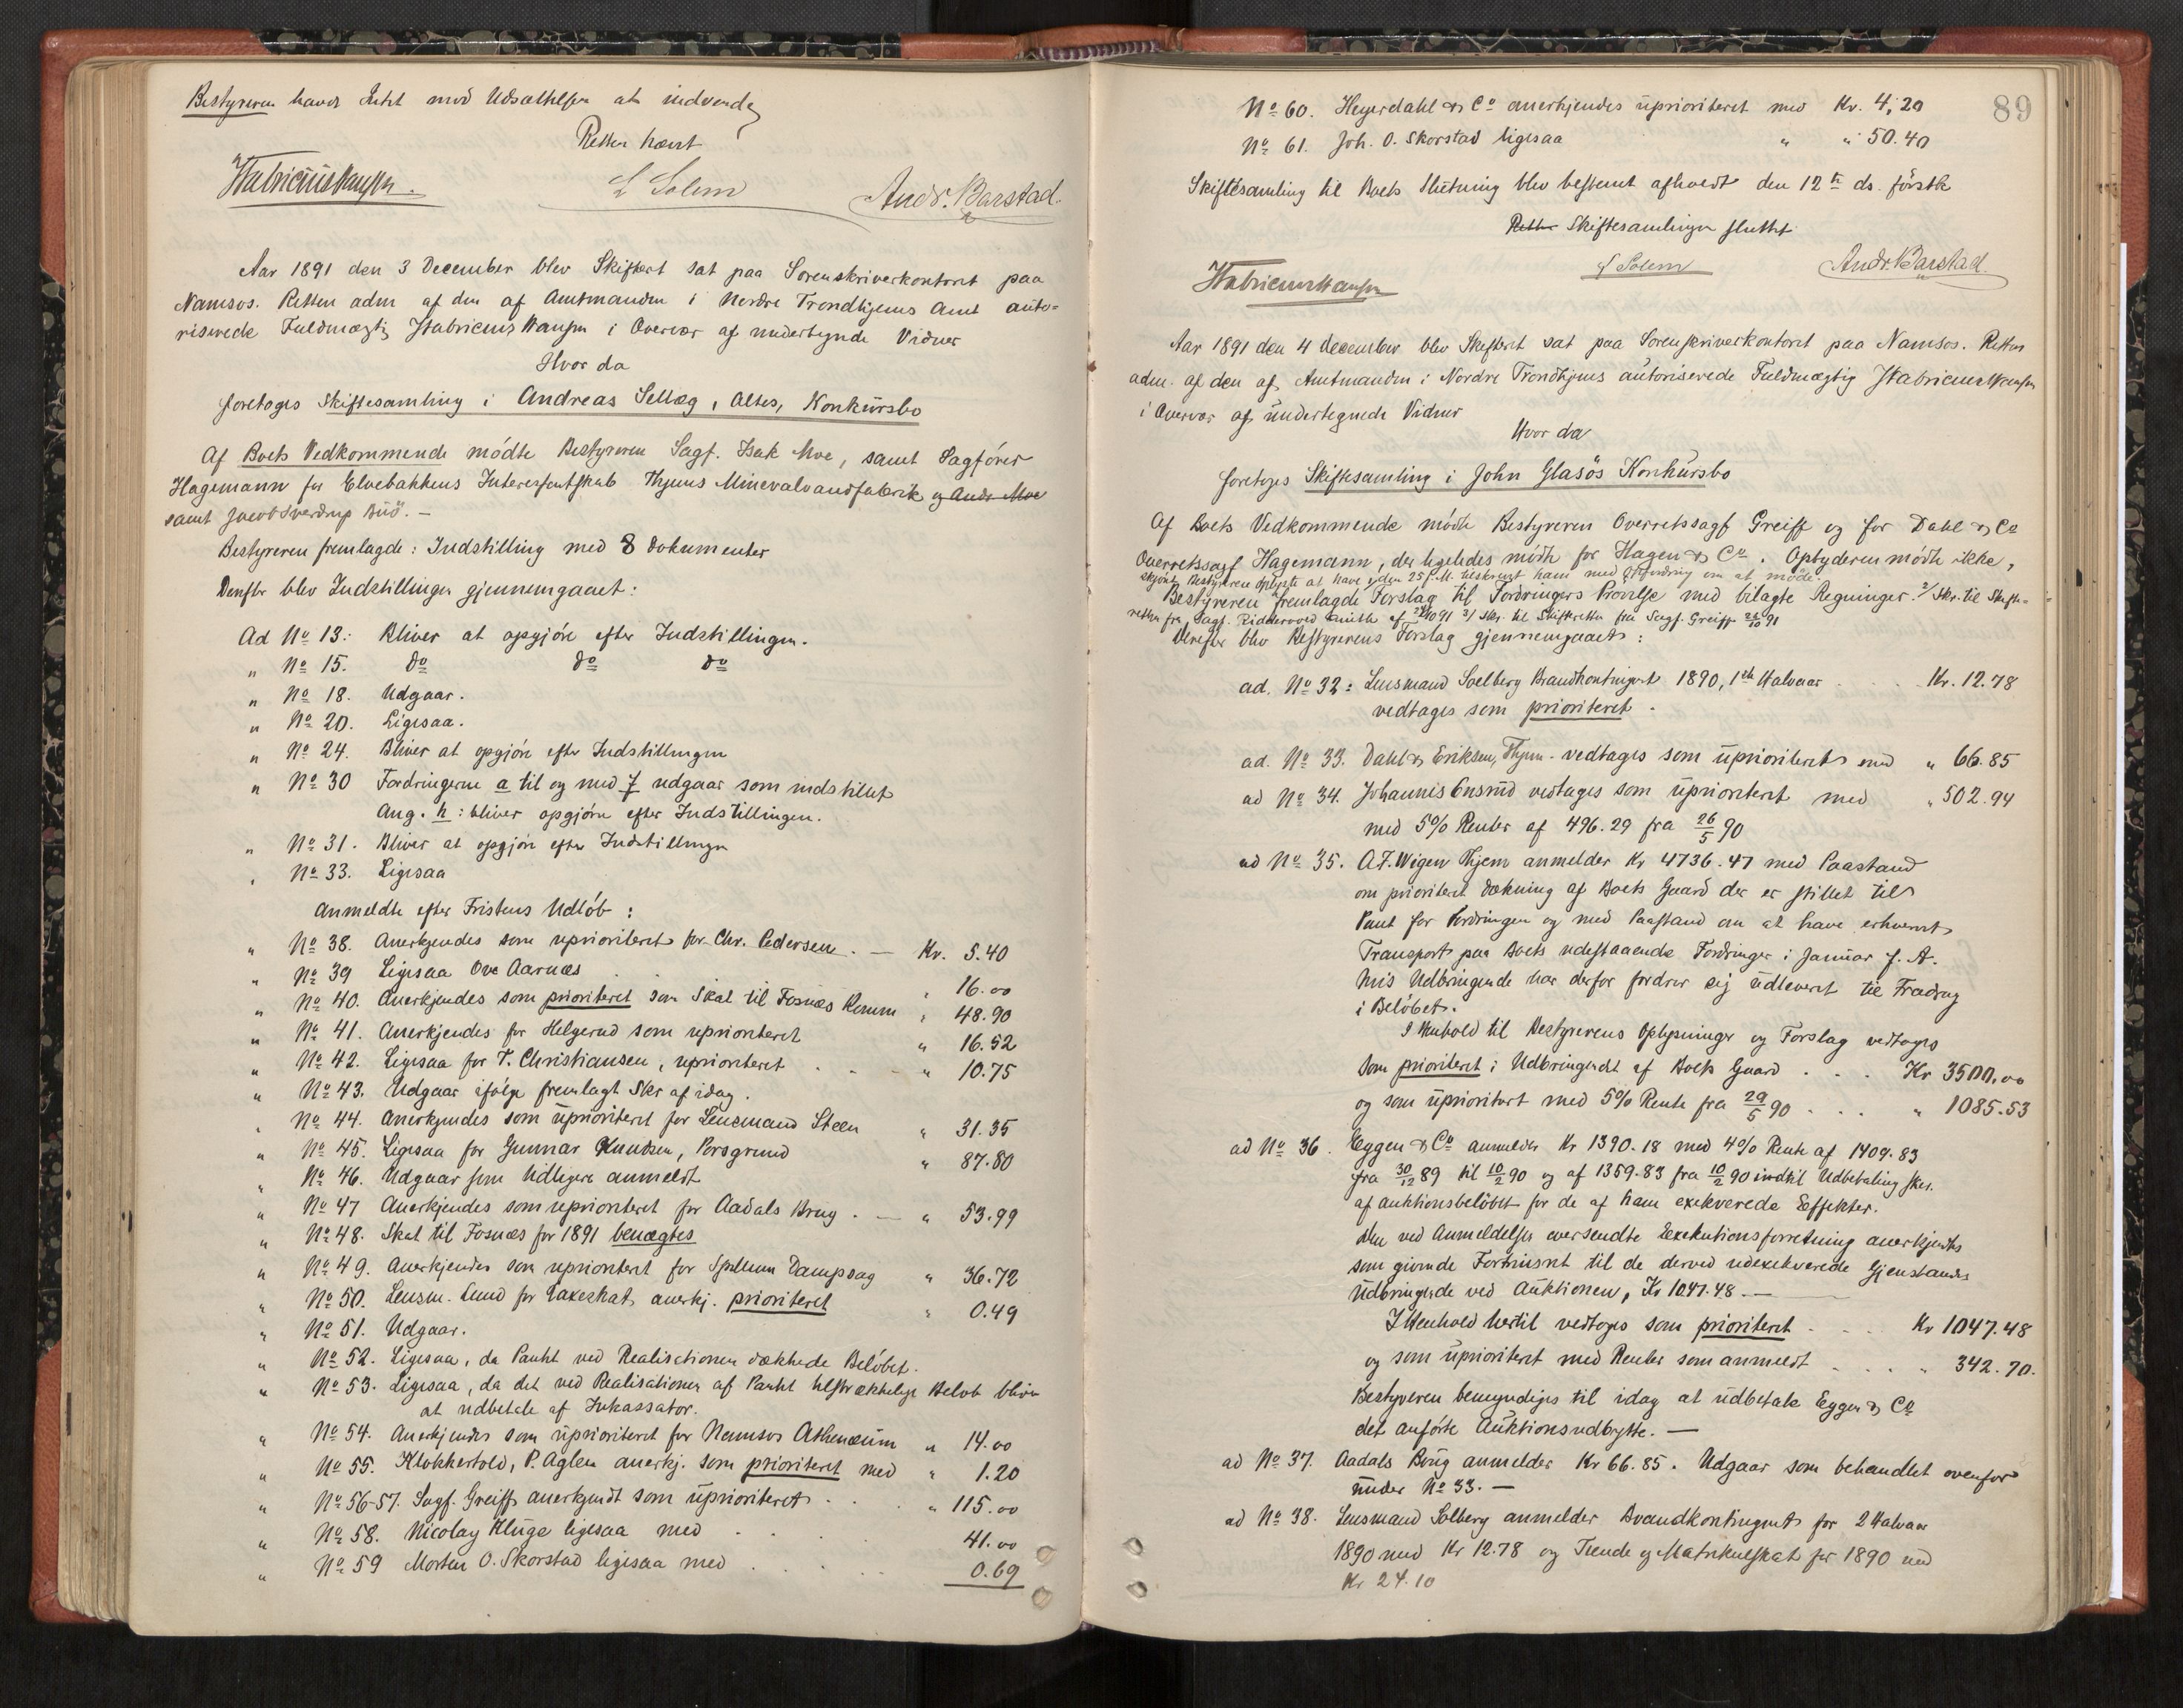 Bestyreren havde Intet mod Udsættelsen at indvende
Retten hævet
L Solem
Andr. Barstad.
Aar 1891 den 3 December blev Skifteret sat paa Sorenskriverkontoret paa
Namsos. Retten adm af den af Amtmanden i Nordre Trondhjems Amt auto-
riserede Fuldmægtig Fabricius Hansen i Overvær af undertegnede Vidner
Hvor da
foretoges Skiftesamling i Andreas Sellæg, Altes, Konkursbo
Af Boets Vedkommende mödte Bestyreren Sagf. Isak Moe, samt Sagförer
Hagemann for Elvebakkens Interessentskab Thjems Mineralvandfabrik og Andr Moe
samt Jacob Sverdrup Buö. -
Bestyreren fremlagde: Indstilling med 8 Dokumenter
Derefter blev Indstillingen gjennemgaaet:
Ad No 13: Bliver at opgjöre efter Indstillingen.
" No 15. do do do
" No 18. Udgaar.
" No 20. Ligesaa.
" No 24. Bliver at opgjöre efter Indstillingen
" No 30 Fordringerne a til og med f udgaar som indstillet
Ang. h: bliver opgjöre efter Indstillingen.
" No 31. Bliver at opgjöre efter Indstillingen
" No 33. Ligesaa
Anmeldte efter Fristens Udlöb:
" No 38. Anerkjendes som uprioriteret for Chr. Pedersen. — Kr. 5.40
" No 39 Ligesaa Ove Aarnæs " 16.00
" No 40. Anerkjendes som prioriteret som Skat til Fosnæs Komm " 48.90
" No 41. Anerkjendes for Helgerud som uprioriteret " 16.52
" No 42. Ligesaa for T. Christiansen, uprioriteret " 10.75
" No 43. Udgaar ifölge fremlagt Skr af idag.
" No 44. Anerkjendes som uprioriteret for Lensmand Steen " 31.35
" No 45. Ligesaa for Gunnar Knudsen, Porsgrund " 87.80
" No 46. Udgaar som tidligere anmeldt
" No 47 Anerkjendes som uprioriteret for Aadals Brug. — " 53.99
" No 48. Skat til Fosnæs for 1891 benægtes
" No 49. Anerkjendes som uprioriteret for Spillum Dampsag " 36.72
" No 50. Lensm. Lund for Taxeskat anerkj. prioriteret " 0.49
" No 51. Udgaar.
" No 52. Ligesaa, da Pantet ved Realisationen dækkede Belöbet.
" No 53. Ligesaa, da det ved Realisationen af Pantet tilstrækkelige Belöb bliver
at udbetale af Inkassator.
" No 54. Anerkjendes som uprioriteret for Namsos Athenæum " 14.00
" No 55. Klokkertold, P. Aglen anerkj. som prioriteret med " 1.20
" No 56-57. Sagf. Greiff anerkjendt som uprioriteret . . " 115.00
" No 58. Nicolay Kluge ligesaa med . . . 41.00
" No 59 Morten O. Skorstad ligesaa med . . . 0.69
89
No 60. Heyerdahl & Co anerkjendes uprioriteret med Kr. 4,20
No 61. Joh. O. Skorstad ligesaa " " 50.40
Skiftesamling til Boets Slutning blev bestemt afholdt den 12te ds. förstk
Retten Skiftesamlingen sluttet
L Solem
Andr. Barstad.
Aar 1891 den 4 december blev Skifteret sat paa Sorenskriverkontoret paa Namsos. Retten
adm. af den af Amtmanden i Nordre Trondhjems autoriserede Fuldmægtig Fabricius Hansen
i Overvær af undertegnede Vidner
Hvor da
foretoges Skiftesamling i John Glasös Konkursbo
Af Boets Vedkommende mödte Bestyreren Overretssagf Greiff og for Dahl & Co
Overretssagf Hagemann, der ligeledes mödte for Hagen & Co. Opbyderen mödte ikke,
skjönt Bestyreren oplyste at have den 25 f.M. tilskrevet ham med Opfordring om at möde.
Bestyreren fremlagde Forslag til Fordringers Prövelse med bilagte Regninger. 2/ Skr. til Skifte-
retten fra Sagf. Riddervold Smith af 24/10 91 3/ Skr. til Skifteretten fra Sagf. Greiff 26/10 91
Derefter blev Bestyrerens Forslag gjennemgaaet:
ad. No 32: Lensmand Solberg Brandkontingent 1890, 1ste Halvaar . . Kr. 12.78
vedtages som prioriteret.
ad. No 33. Dahl & Eriksen, Thjem - vedtages som uprioriteret med " 66.85
ad No 34. Johannes Ensrud vedtages som uprioriteret med " 502.94
med 5% Renter af 496.29 fra 26/5 90
ad No 35. A. F. Wigen Thjem anmelder Kr 4736.47 med Paastand
om prioriteret Dækning af Boets Gaard der er stillet til
Pant for Fordringen og med Paastand om at have erhvervet
Transport paa Boets udestaaende Fordringer i Januar f. A.
hvis Udbringende han derfor fordrer sig udleveret til Fradrag
i Belöbet.
I Henhold til Bestyrerens Oplysninger og Forslag vedtoges
Som prioriteret i Udbringendet af Boets Gaard . . . Kr 3500.00
og som uprioritert med 5% Rente fra 29/5 90 . . . " 1085.53
ad No 36. Eggen & Co anmelder Kr 1390.18 med 4% Rente af 1409.83
fra 30/12 89 til 10/2 90 og af 1359.83 fra 10/2 90 indtil Udbetaling sker.
af auktionsbelöbet for de af ham exekverede Effekter.
Den ved Anmeldelsen oversendte Exekutionsforretning anerkjendtes
som givende Fortrinsret til de derved udexekverede Gjenstandes
Udbringende ved Auktionen, Kr 1047.48. —
I Henhold hertil vedtoges som prioriteret . . . Kr 1047.48
og som uprioriteret med Renter som anmeldt . . . " 342.70.
Bestyreren bemyndiges til idag at udbetale Eggen & Co
det anförte Auktionsudbytte. —
ad No 37. Aadals Brug anmelder Kr 66.85. Udgaar som behandlet ovenfor
under No 33. —
ad No 38. Lensmand Solberg anmelder Brandkontingent for 2 Halvaar
1890 med Kr 12.78 og Tiende og Matrikulskat for 1890 med
Kr 24.10